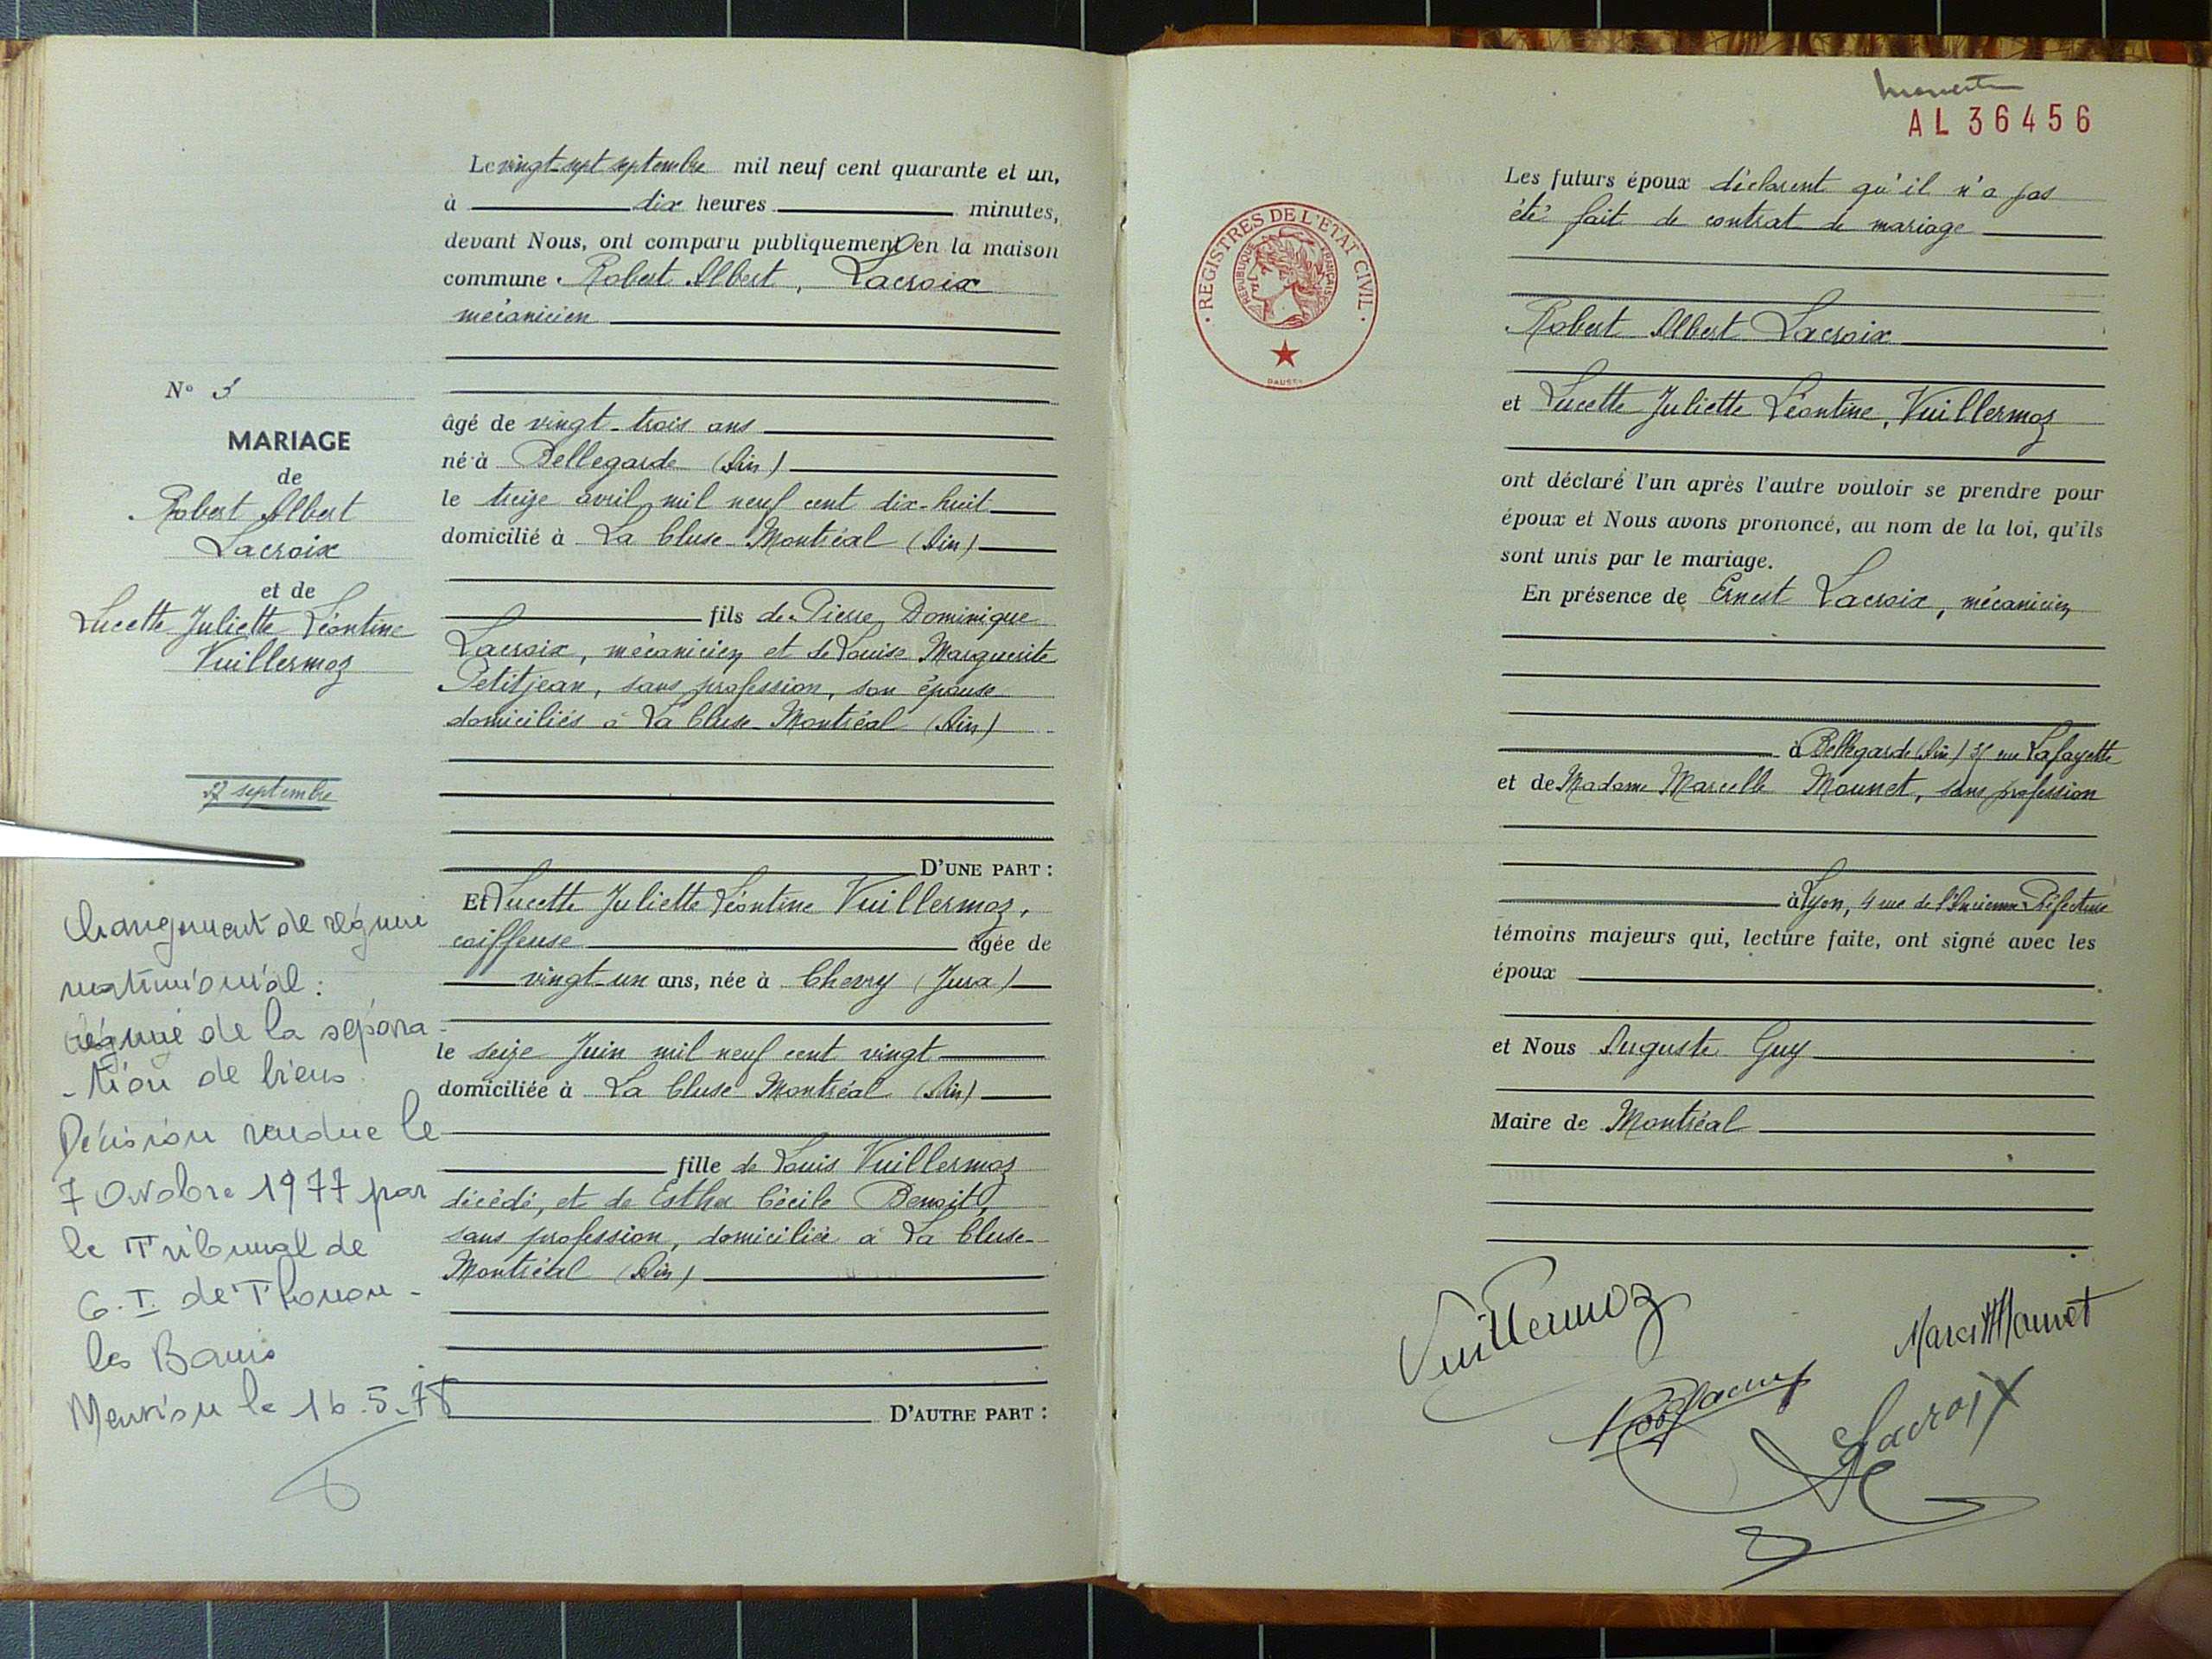 Le vingt-sept septembre mil neuf cent quarante et un,
à dix heures minutes,
devant Nous, ont comparu publiquement en la maison
commune Robert Albert, Lacroix
mécanicien
âgé de vingt-trois ans
né à Bellegarde (Ain)
le treize avril mil neuf cent dix-huit
domicilié à La Cluse-Montréal (Ain)
fils de Pierre Dominique
Lacroix, mécanicien et de Louise Marguerite
Petitjean, sans profession, son épouse
domiciliés à La Cluse-Montréal (Ain)
D'UNE PART :
Et Lucette Juliette Léontine Vuillermoz,
coiffeuse âgée de
vingt-un ans, née à (Jura)
le seize Juin mil neuf cent vingt
domiciliée à La Cluse-Montréal (Ain)
fille de Louis Vuillermoz
décédé, et de Esther Cécile Benoit,
sans profession, domiciliée à La Cluse-
Montréal (Ain)
D'AUTRE PART :
N° 3
MARIAGE
de
Robert Albert
Lacroix
et de
Lucette Juliette Léontine
Vuillermoz
27 septembre
Changement de régime
matrimonial :
régime de la sépara-
-tion de biens.
Décision rendue le
7 Octobre 1977 par
le Tribunal de
G.I. de Thonon-
les Bains
Mention le 16.5.78
AL 36456
REGISTRES DE L'ETAT CIVIL
REPUBLIQUE FRANÇAISE
Les futurs époux déclarent qu'il n'a pas
été fait de contrat de mariage
Robert Albert Lacroix
et Lucette Juliette Léontine, Vuillermoz
ont déclaré l'un après l'autre vouloir se prendre pour
époux et Nous avons prononcé, au nom de la loi, qu'ils
sont unis par le mariage.
En présence de Ernest Lacroix, mécanicien
à Bellegarde (Ain) rue Lafayette
et de Madame Marcelle Mounet, sans profession
à Lyon, 4 rue de l'Ancienne Préfecture
témoins majeurs qui, lecture faite, ont signé avec les
époux
et Nous Auguste Guy
Maire de Montréal
Vuillermoz
Marcelle Mounet
Lacroix